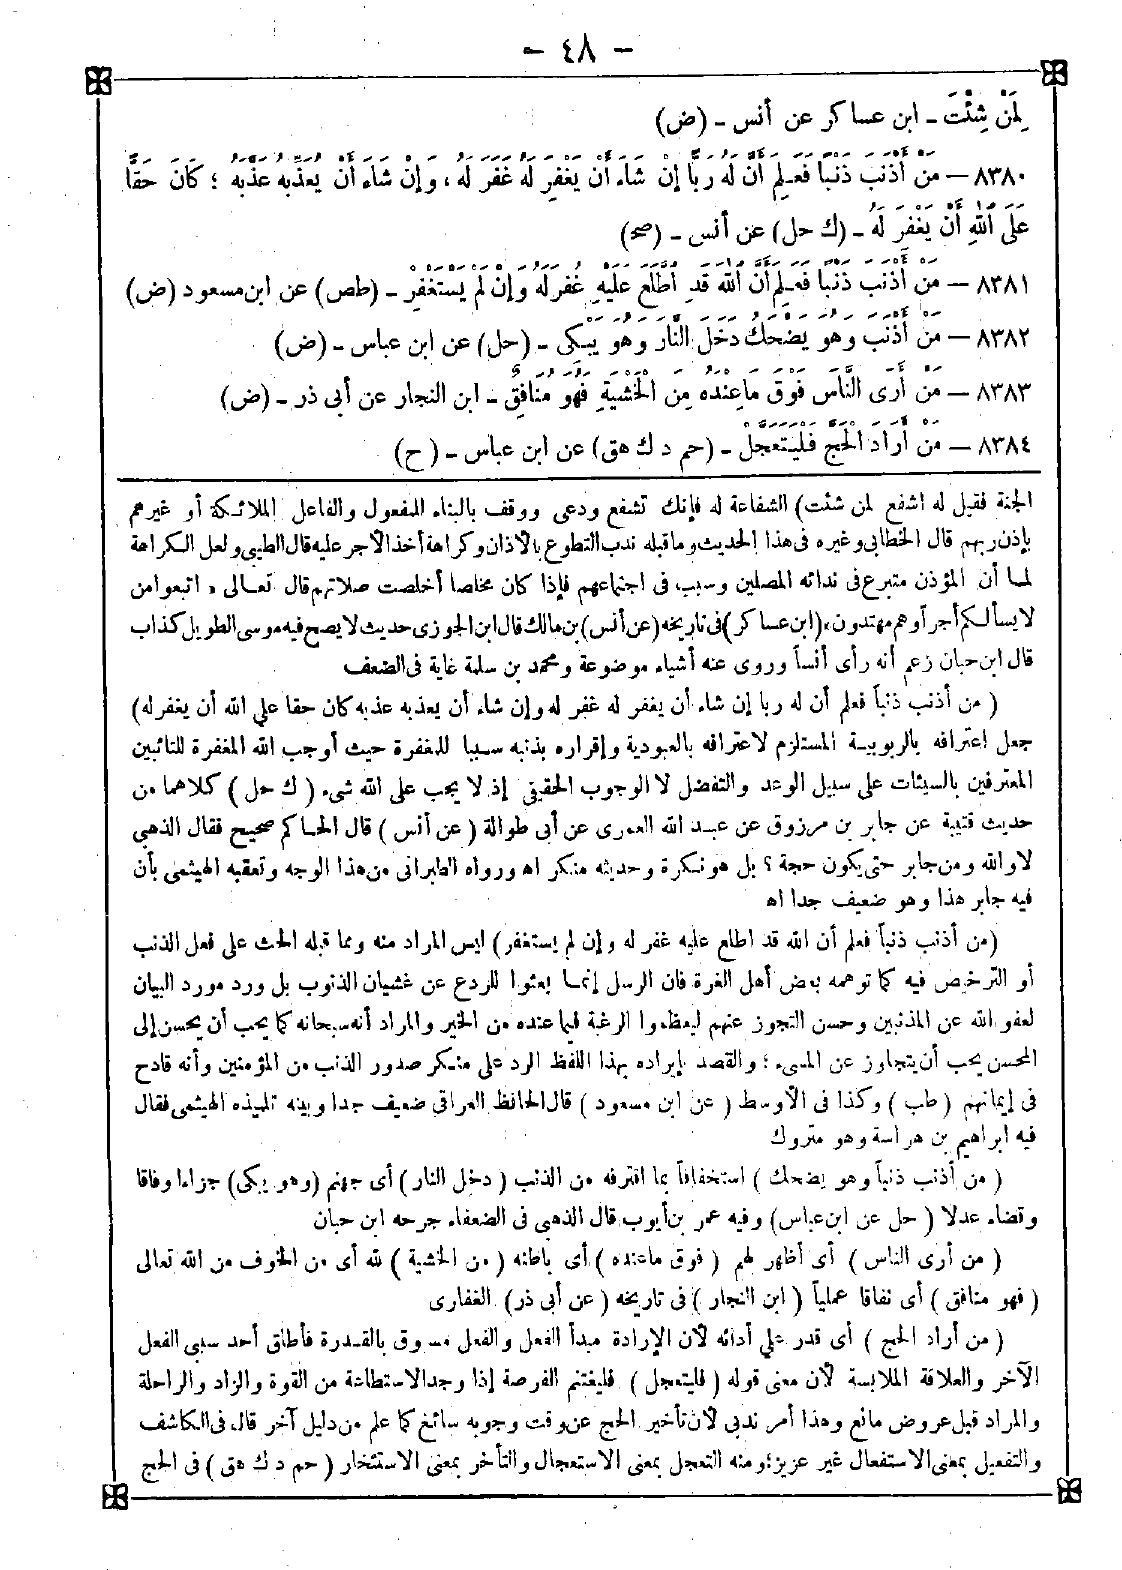 - ٤٨ -
لِمَنْ شِئْتَ - ابن عساكر عن أنس - (ض)
٨٣٨٠ - مَنْ أَذْنَبَ ذَنْبًا فَعَلِمَ أَنَّ لَهُ رَبًّا إِنْ شَاءَ أَنْ يَغْفِرَ لَهُ غَفَرَ لَهُ، وَإِنْ شَاءَ أَنْ يُعَذِّبَهُ عَذَّبَهُ ؛ كَانَ حَقًّا
عَلَى اللهِ أَنْ يَغْفِرَ لَهُ - (ك حل) عن أنس - (صح)
٨٣٨١ - مَنْ أَذْنَبَ ذَنْبًا فَعَلِمَ أَنَّ اللهَ قَدِ اطَّلَعَ عَلَيْهِ غُفِرَ لَهُ وَإِنْ لَمْ يَسْتَغْفِرْ - (طص) عن ابن مسعود (ض)
٨٣٨٢ - مَنْ أَذْنَبَ وَهُوَ يَضْحَكُ دَخَلَ النَّارَ وَهُوَ يَبْكِى - (حل) عن ابن عباس - (ض)
٨٣٨٣ - مَنْ أَرَى النَّاسَ فَوْقَ مَاعِنْدَهُ مِنَ الْخَشْيَةِ فَهُوَ مُنَافِقٌ - ابن النجار عن أبى ذر - (ض)
٨٣٨٤ - مَنْ أَرَادَ الْحَجَّ فَلْيَتَعَجَّلْ - (حم د ك هق) عن ابن عباس - (ح)
الجنة فقيل له اشفع لمن شئت) الشفاعة له فإنك تشفع ودعى ووقف بالبناء للمفعول والفاعل الملائكة أو غيرهم
بإذن ربهم قال الخطابى وغيره فى هذا الحديث وما قبله ندب التطوع بالأذان وكراهة أخذ الأجر عليه قال الطيبى ولعل الكراهة
لما أن المؤذن متبرع فى ندائه المصلين وسبب فى اجتماعهم فإذا كان مخلصا أخلصت صلاتهم قال تعالى « اتبعوا من
لا يسألكم أجرا وهم مهتدون» (ابن عساكر) فى تاريخه (عن أنس) بن مالك قال ابن الجوزى حديث لا يصح فيه موسى الطويل كذاب
قال ابن حبان زعم أنه رأى أنساً وروى عنه أشياء موضوعة ومحمد بن سلمة غاية فى الضعف
( من أذنب ذنباً فعلم أن له ربا إن شاء أن يغفر له غفر له وإن شاء أن يعذبه عذبه كان حقا على الله أن يغفر له)
جعل اعترافه بالربوبية المستلزم لاعترافه بالعبودية وإقراره بذنبه سببا للمغفرة حيث أوجب الله المغفرة للتائبين
المعترفين بالسيئات على سبيل الوعد والتفضل لا الوجوب الحقيقى إذ لا يجب على الله شىء ( ك حل ) كلاهما من
حديث قتيبة عن جابر بن مرزوق عن عبد الله العمرى عن أبى طوالة ( عن أنس ) قال الحاكم صحيح فقال الذهبى
لا والله ومن جابر حتى يكون حجة ؟ بل هو نكرة وحديثه منكر اه ورواه الطبرانى من هذا الوجه وتعقبه الهيثمى بأن
فيه جابر هذا وهو ضعيف جدا اه
(من أذنب ذنباً فعلم أن الله قد اطلع عليه غفر له وإن لم يستغفر) ليس المراد منه ومما قبله الحث على فعل الذنب
أو الترخيص فيه كما توهمه بعض أهل الغرة فان الرسل إنما بعثوا للردع عن غشيان الذنوب بل ورد مورد البيان
لعفو الله عن المذنبين وحسن التجوز عنهم ليعظموا الرغبة فيما عنده من الخير والمراد أنه سبحانه كما يحب أن يحسن إلى
المحسن يحب أن يتجاوز عن المسىء ؛ والقصد بإيراده بهذا اللفظ الرد على منكر صدور الذنب من المؤمنين وأنه قادح
فى إيمانهم ( طب ) وكذا فى الأوسط ( عن ابن مسعود ) قال الحافظ العراقى ضعيف جدا وبينه تلميذه الهيثمى فقال
فيه ابراهيم بن هراسة وهو متروك
( من أذنب ذنباً وهو يضحك ) استخفافاً بما اقترفه من الذنب ( دخل النار ) أى جهنم (وهو يبكى) جزاءا وفاقا
وقضاء عدلا ( حل عن ابن عباس) وفيه عمر بن أيوب قال الذهبى فى الضعفاء جرحه ابن حبان
( من أرى الناس ) أى أظهر لهم ( فوق ماعنده ) أى باطنه ( من الخشية ) لله أى من الخوف من الله تعالى
( فهو منافق ) أى نفاقا عملياً ( ابن النجار ) فى تاريخه ( عن أبى ذر) الغفارى
( من أراد الحج ) أى قدر على أدائه لأن الإرادة مبدأ الفعل والفعل مسبوق بالقدرة فأطلق أحد سببى الفعل
الآخر والعلاقة الملابسة لأن معنى قوله ( فليتعجل ) فليغتنم الفرصة إذا وجد الاستطاعة من القوة والزاد والراحلة
والمراد قبل عروض مانع وهذا أمر ندبى لأن تأخير الحج عن وقت وجوبه سائغ كما علم من دليل آخر قال فى الكاشف
والتفعيل بمعنى الاستفعال غير عزيز؛ ومنه التعجل بمعنى الاستعجال والتأخر بمعنى الاستئخار ( حم د ك هق ) فى الحج